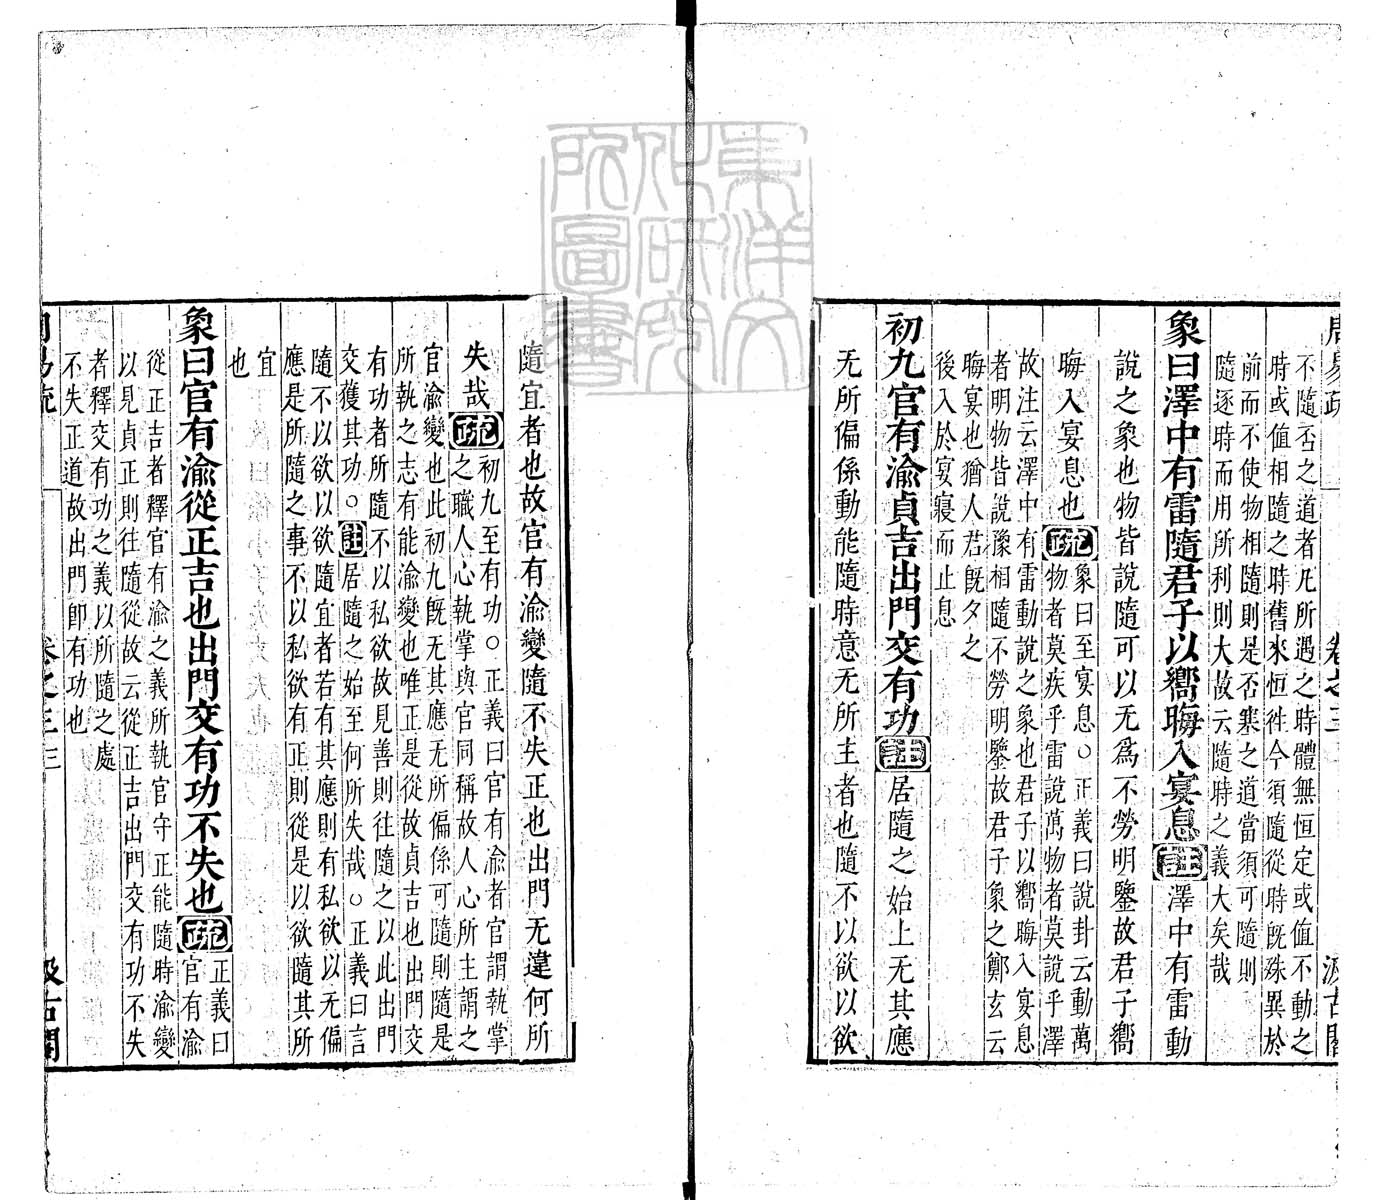 周易疏 卷之三 汲古閣
不隨否之道者凡所遇之時體無恒定或值不動之
時或值相隨之時舊來恒徃今須隨從時既殊異於
前而不使物相隨則是否塞之道當須可隨則
隨逐時而用所利則大故云隨時之義大矣哉
象曰澤中有雷隨君子以嚮晦入宴息註澤中有雷動
說之象也物皆說隨可以无爲不勞明鑒故君子嚮
晦入宴息也疏象曰至宴息○正義曰說卦云動萬
物者莫疾乎雷說萬物者莫說乎澤
故注云澤中有雷動說之象也君子以嚮晦入宴息
者明物皆說豫相隨不勞明鑒故君子象之鄭玄云
晦宴也猶人君既夕之
後入於宴寢而止息
初九官有渝貞吉出門交有功註居隨之始上无其應
无所偏係動能隨時意无所主者也隨不以欲以欲
隨宜者也故官有渝變隨不失正也出門无違何所
失哉疏初九至有功○正義曰官有渝者官謂執掌
之職人心執掌與官同稱故人心所主謂之
官渝變也此初九既无其應无所偏係可隨則隨是
所執之志有能渝變也唯正是從故貞吉也出門交
有功者所隨不以私欲故見善則往隨之以此出門
交獲其功○註居隨之始至何所失哉○正義曰言
隨不以欲以欲隨宜者若有其應則有私欲以无偏
應是所隨之事不以私欲有正則從是以欲隨其所
宜
也
象曰官有渝從正吉也出門交有功不失也疏正義曰
官有渝
從正吉者釋官有渝之義所執官守正能隨時渝變
以見貞正則往隨從故云從正吉出門交有功不失
者釋交有功之義以所隨之處
不失正道故出門卽有功也
周易疏 卷之三 三 汲古閣
東洋文
化研究
所圖書